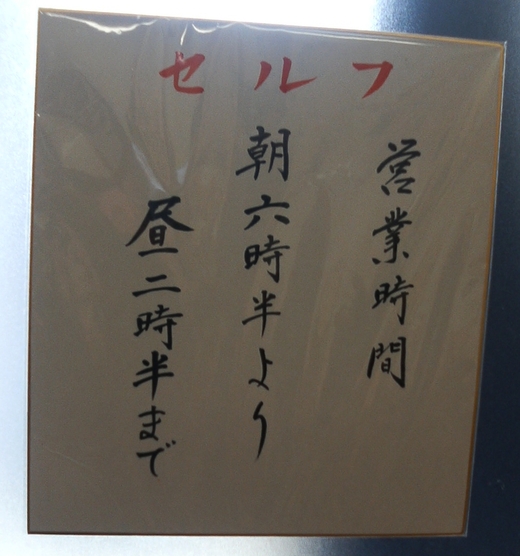 セルフ
営業時間
朝六時半より
昼二時半まで